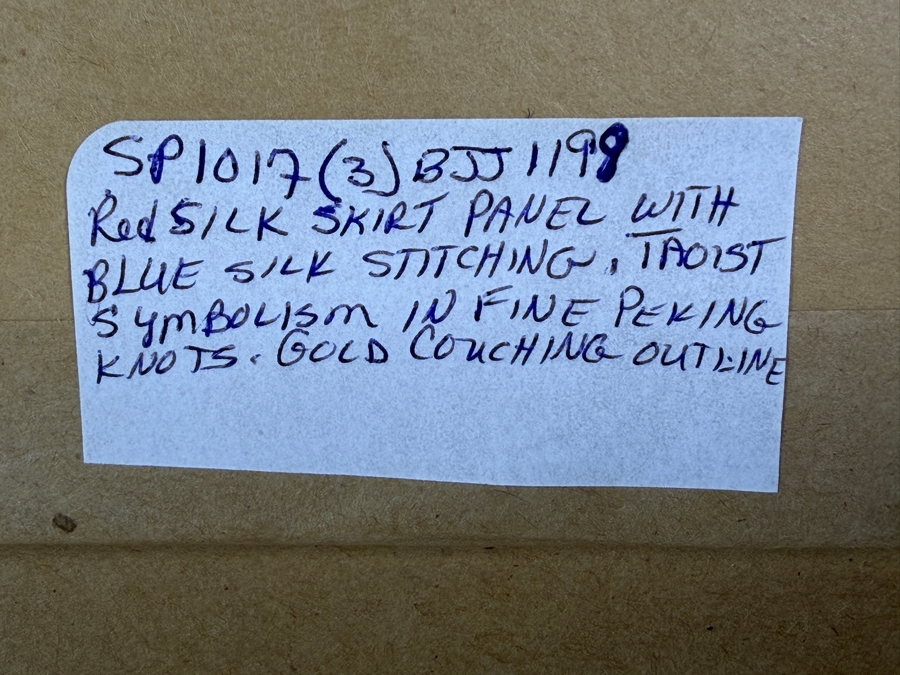 SP1017(3) BJJ 1198
Red SILK SKIRT PANEL WITH
BLUE SILK STITCHING, TAOIST
SYMBOLISM IN FINE PEKING
KNOTS. GOLD COUCHING OUTLINE